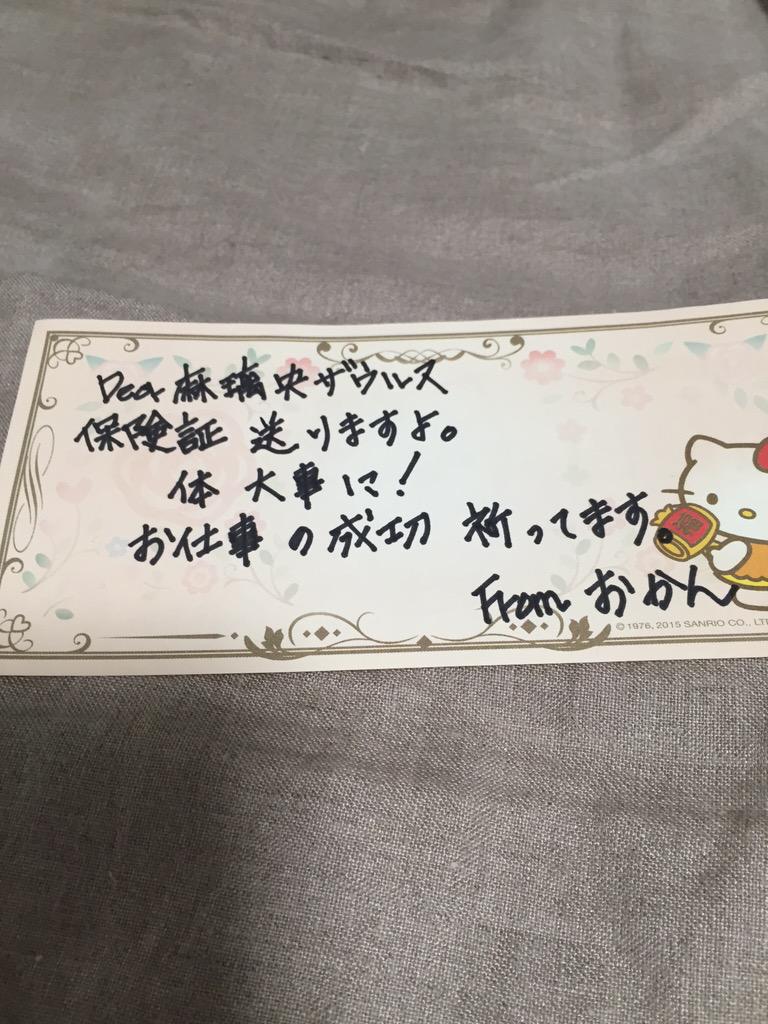 Dear 麻璃央ザウルス
保険証 送りますよ。
体 大事に!
お仕事の成功 祈ってます。
From おかん
© 1976, 2015 SANRIO CO., LT